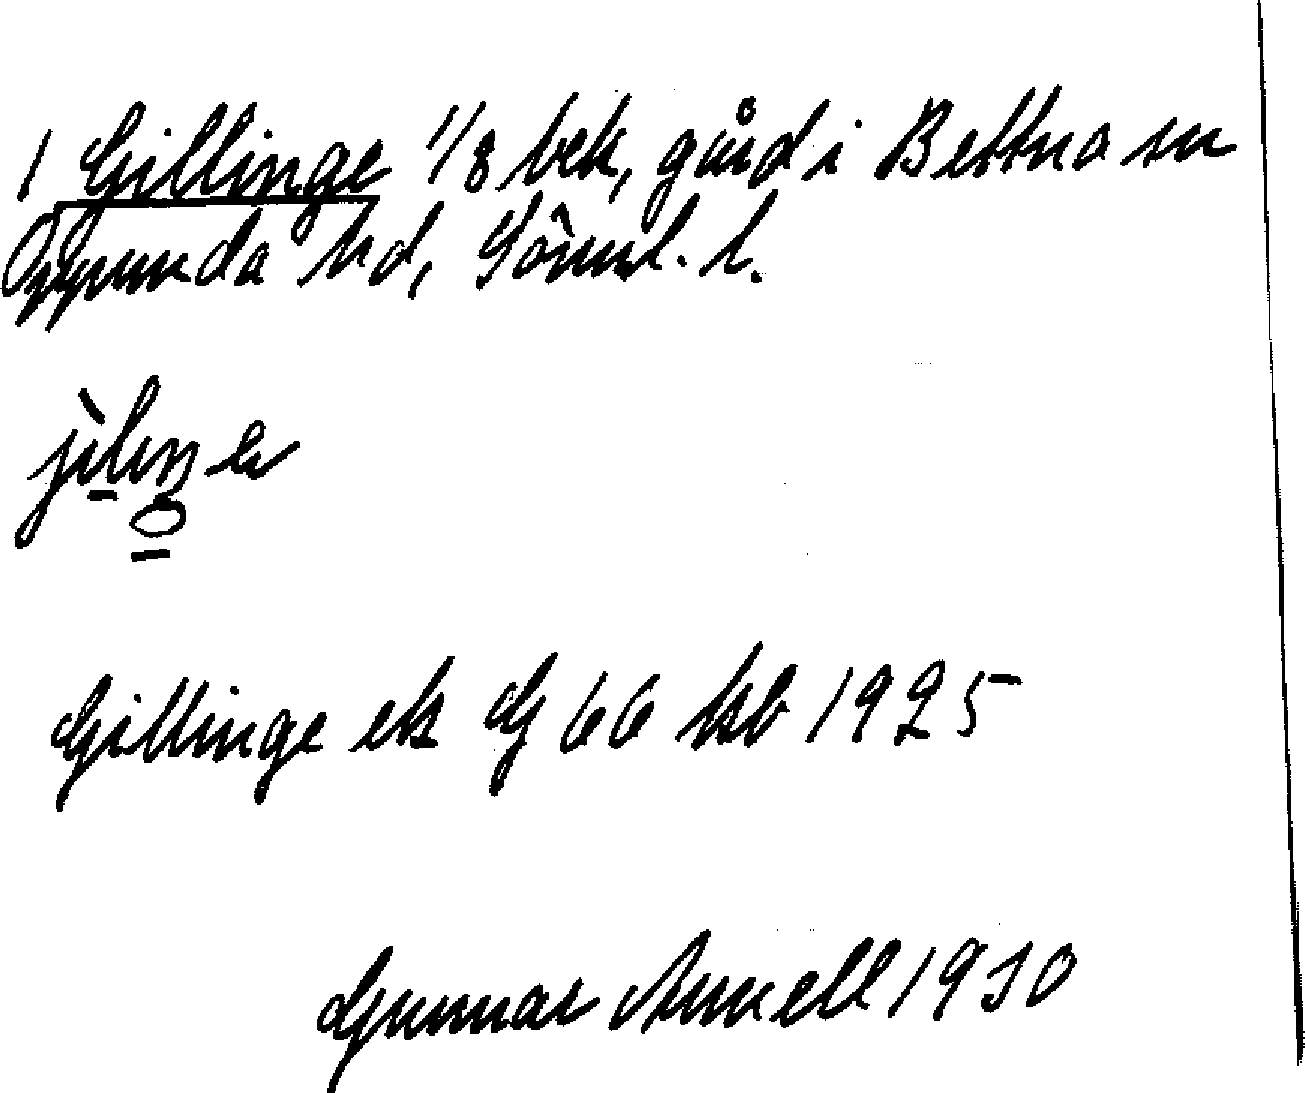 1 Gillinge 1/8 bek, gård i Bettna sn
Oppunda hd, Söml. l.
jìliŋe
Gillinge ek G 66 kb 1925
Gunnar Arnell 1930